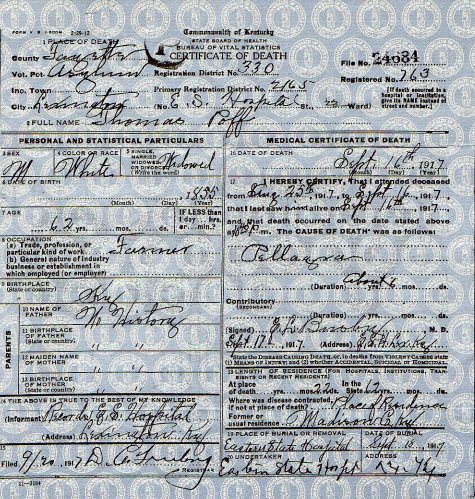 FORM V S 1-500M 2-29-12
Commonwealth of Kentucky
STATE BOARD OF HEALTH
BUREAU OF VITAL STATISTICS
CERTIFICATE OF DEATH
1 PLACE OF DEATH
County Fayette
Vot. Pct. Asylum
Inc. Town
City Lexington
Registration District No. 330
Primary Registration District No. 2165
(No. E. S. Hospital St., Ward)
File No. 24684
Registered No. 763
[If death occurred in a hospital or institution, give its NAME instead of street and number.]
2 FULL NAME Thomas Poff
PERSONAL AND STATISTICAL PARTICULARS
3 SEX
M
4 COLOR OR RACE
White
5 SINGLE, MARRIED WIDOWED OR DIVORCED
(Write the word)
Widowed
6 DATE OF BIRTH
1855
(Month) (Day) (Year)
7 AGE
62 yrs. mos. ds.
IF LESS than 1 day, hrs. or min.?
8 OCCUPATION
(a) Trade, profession, or particular kind of work Farmer
(b) General nature of industry business or establishment in which employed (or employer)
9 BIRTHPLACE
(State or country) Ky
PARENTS
10 NAME OF FATHER No History
11 BIRTHPLACE OF FATHER
(State or country)
12 MAIDEN NAME OF MOTHER
13 BIRTHPLACE OF MOTHER
(State or country)
14 THE ABOVE IS TRUE TO THE BEST OF MY KNOWLEDGE
(Informant) Records E. S. Hospital
(Address) Lexington Ky
15
Filed 9/20, 1917
Registrar
11-3184
MEDICAL CERTIFICATE OF DEATH
16 DATE OF DEATH
Sept 16th, 1917
(Month) (Day) (Year)
17 I HEREBY CERTIFY, That I attended deceased
from Aug 25th, 1917, to Sept 16, 1917
that I last saw him alive on Sept 16th, 1917,
and that death occurred on the date stated above
at m. The CAUSE OF DEATH was as follows:
Pellagra
About 6
(Duration) yrs. mos. ds.
Contributory
(SECONDARY)
(Duration) yrs. mos. ds.
(Signed) M. D.
Sept 17, 1917 (Address)
*State the DISEASE CAUSING DEATH, or, in deaths from VIOLENT CAUSES state (1) MEANS OF INJURY; and (2) whether ACCIDENTAL, SUICIDAL or HOMICIDAL
18 LENGTH OF RESIDENCE (FOR HOSPITALS, INSTITUTIONS, TRANSIENTS OR RECENT RESIDENTS)
At place of death yrs. mos. ds. In the State 62 yrs. mos. ds.
Where was disease contracted, if not at place of death? Place of Residence
Former or usual residence Madison Co Ky
19 PLACE OF BURIAL OR REMOVAL
Eastern State Hospital
DATE OF BURIAL
Sept 18, 1917
20 UNDERTAKER
Eastern State Hospt
ADDRESS
Lex Ky